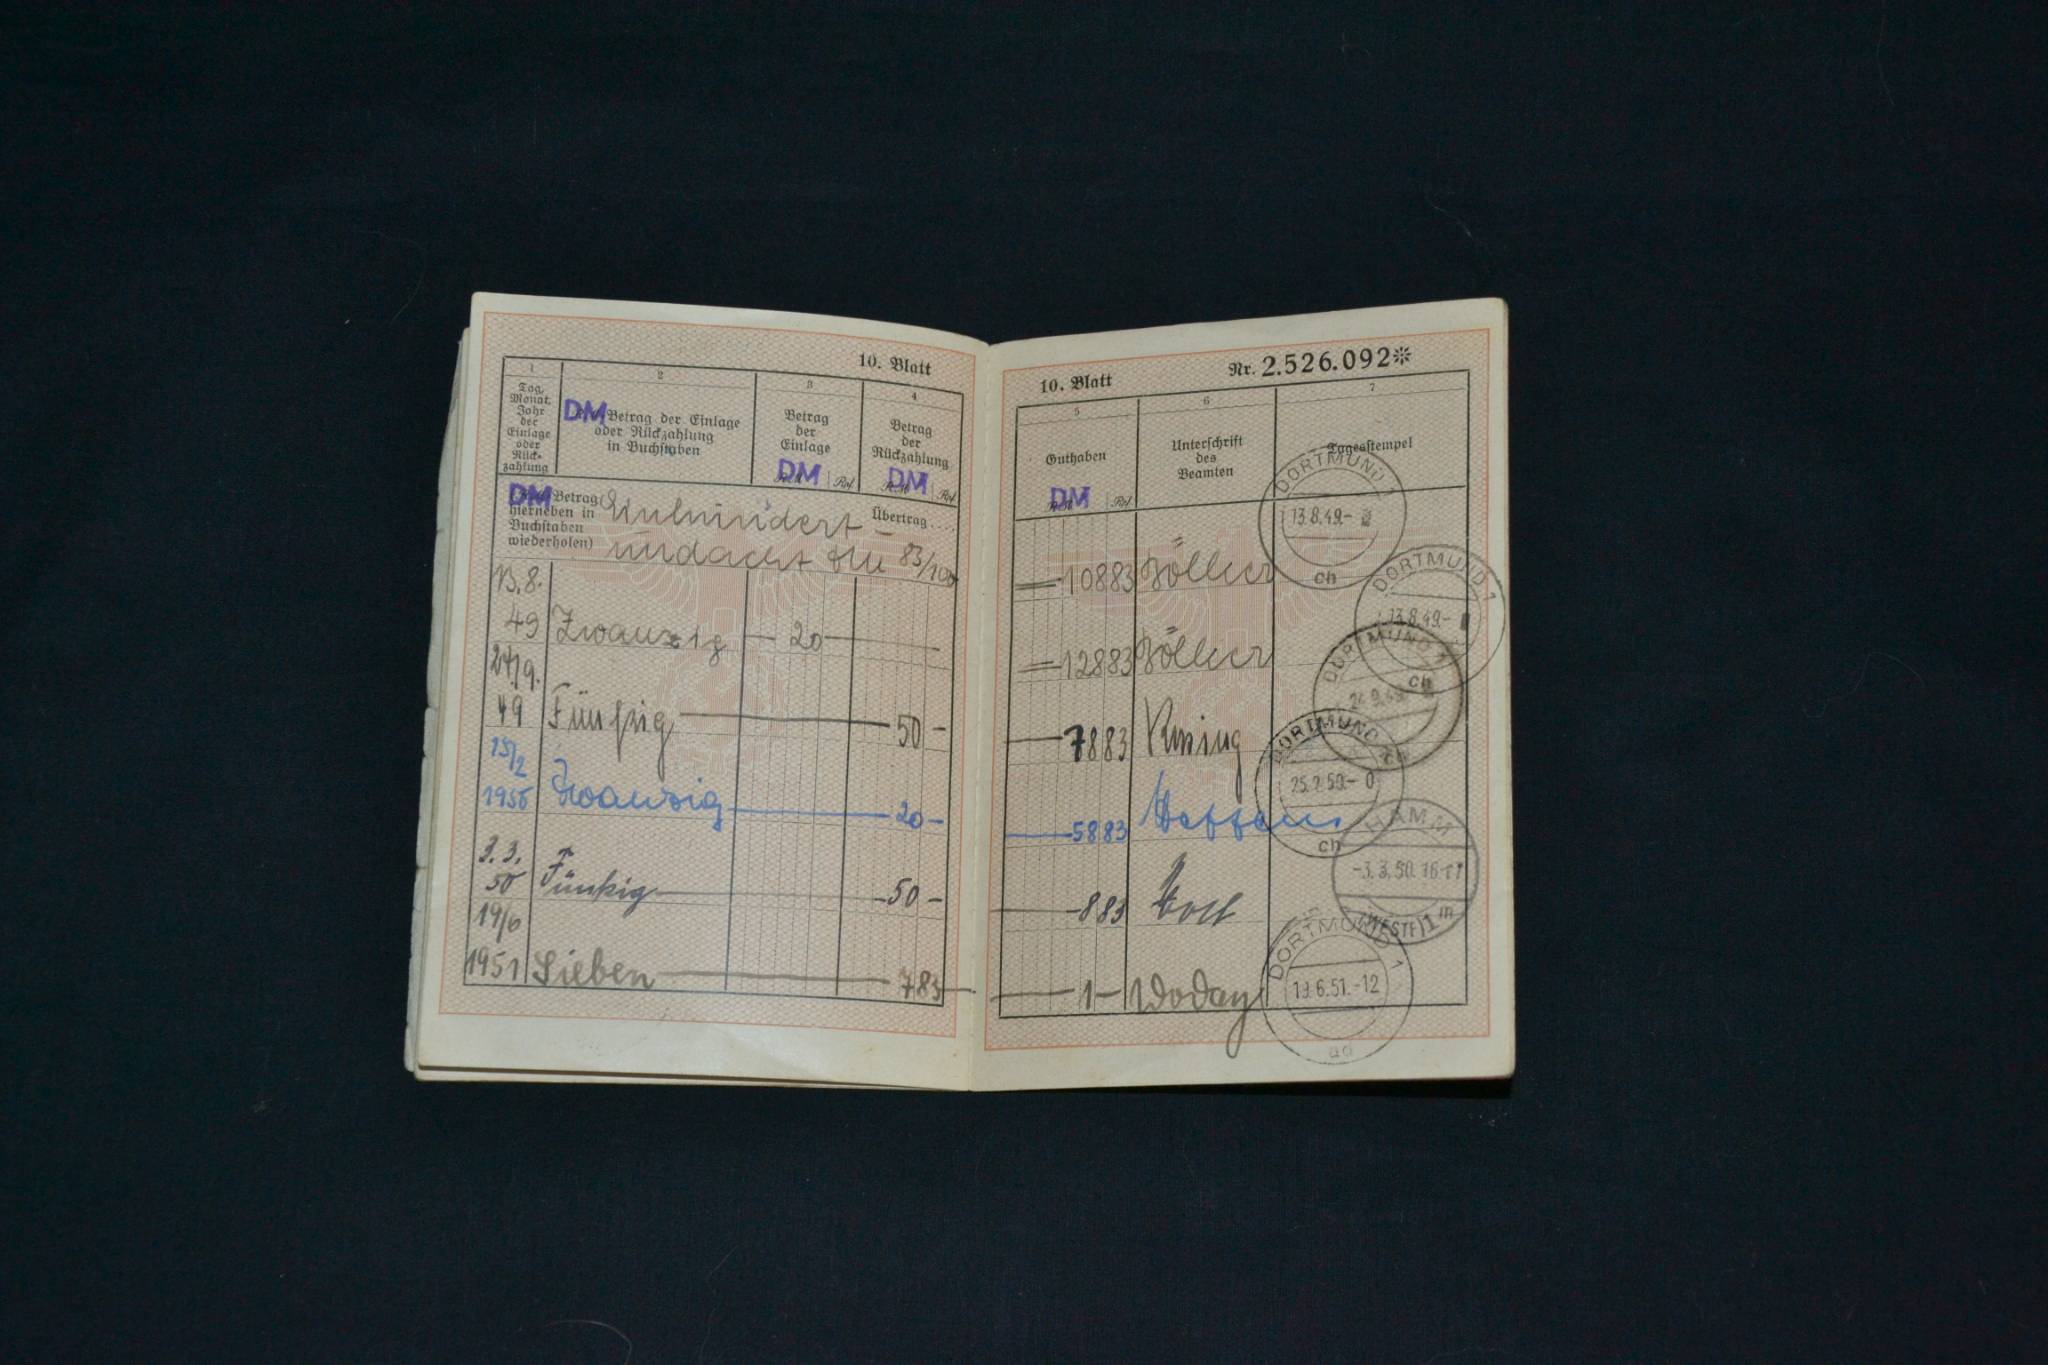 10. Blatt
1 2 3 4
Tag, Monat, Jahr der Einlage oder Rückzahlung
DM Betrag der Einlage
oder Rückzahlung
in Buchstaben
Betrag
der
Einlage
DM Rpf
Betrag
der
Rückzahlung
DM Rpf
DM Betrag
hierneben in
Buchstaben
wiederholen)
Einhundert –
undacht DM 83/100
Übertrag . . .
13.8.
49 Zwanzig 20
24/9.
49 Fünfzig 50 –
1950 Zwanzig 20 –
3.3.
50 Fünfzig 50 –
19/6
1951 Sieben 783
10. Blatt Nr. 2.526.092
5 6 7
Guthaben
DM Rpf
Unterschrift
des
Beamten
Tagesstempel
10883
12883
7883
5883
883
1 –
DORTMUND 1
13.8.49.–
ch
DORTMUND 1
13.8.49.–
ch
DORTMUND 1
24.9.49
DORTMUND
25.2.50.– 0
ch
HAMM
–3.3.50.16–17
(WESTF) 1
m
DORTMUND 1
19.6.51.–12
ad